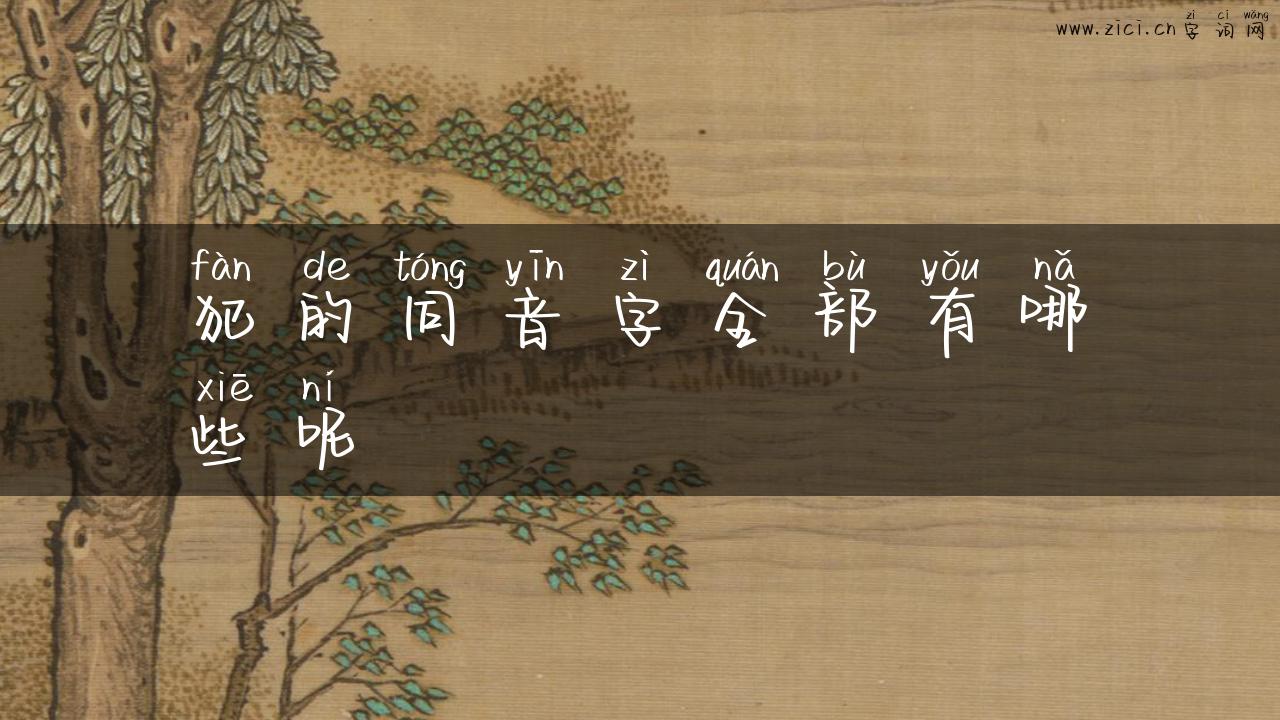 zì cí wǎng
www.zici.cn 字词网
fàn de tóng yīn zì quán bù yǒu nǎ
犯的同音字全部有哪
xiē ní
些呢